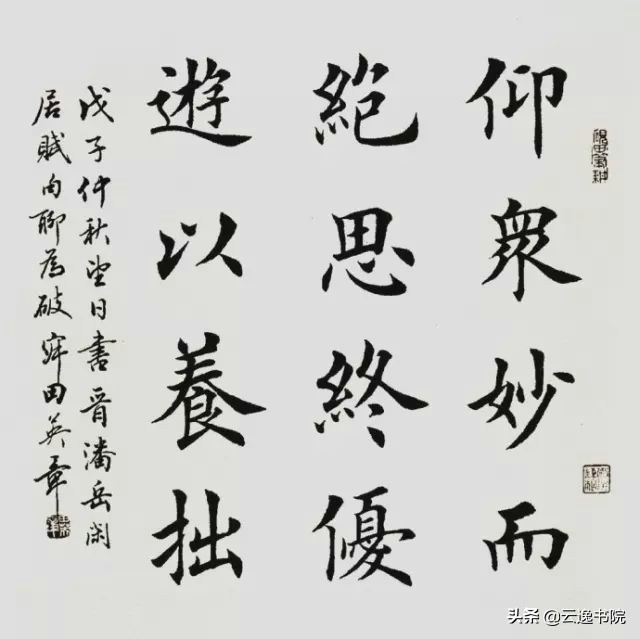 仰衆妙而
絶思終優
遊以養拙
戊子仲秋望日書晋潘岳闲
居賦句聊為破田英章
头条 @云逸书院